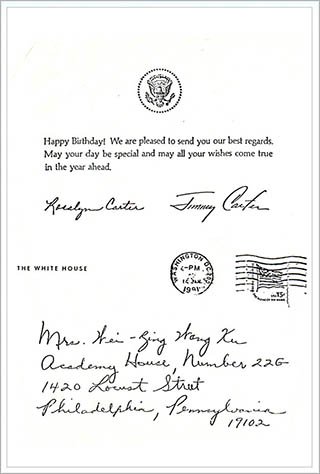 Happy Birthday! We are pleased to send you our best regards.
May your day be special and may all your wishes come true
in the year ahead.
Rosalynn Carter Jimmy Carter
THE WHITE HOUSE
WASHINGTON, DC
PM
Mrs. Wei-Bing Wong Xu
Academy House, Number 22G
1420 Locust Street
Philadelphia, Pennsylvania
19102